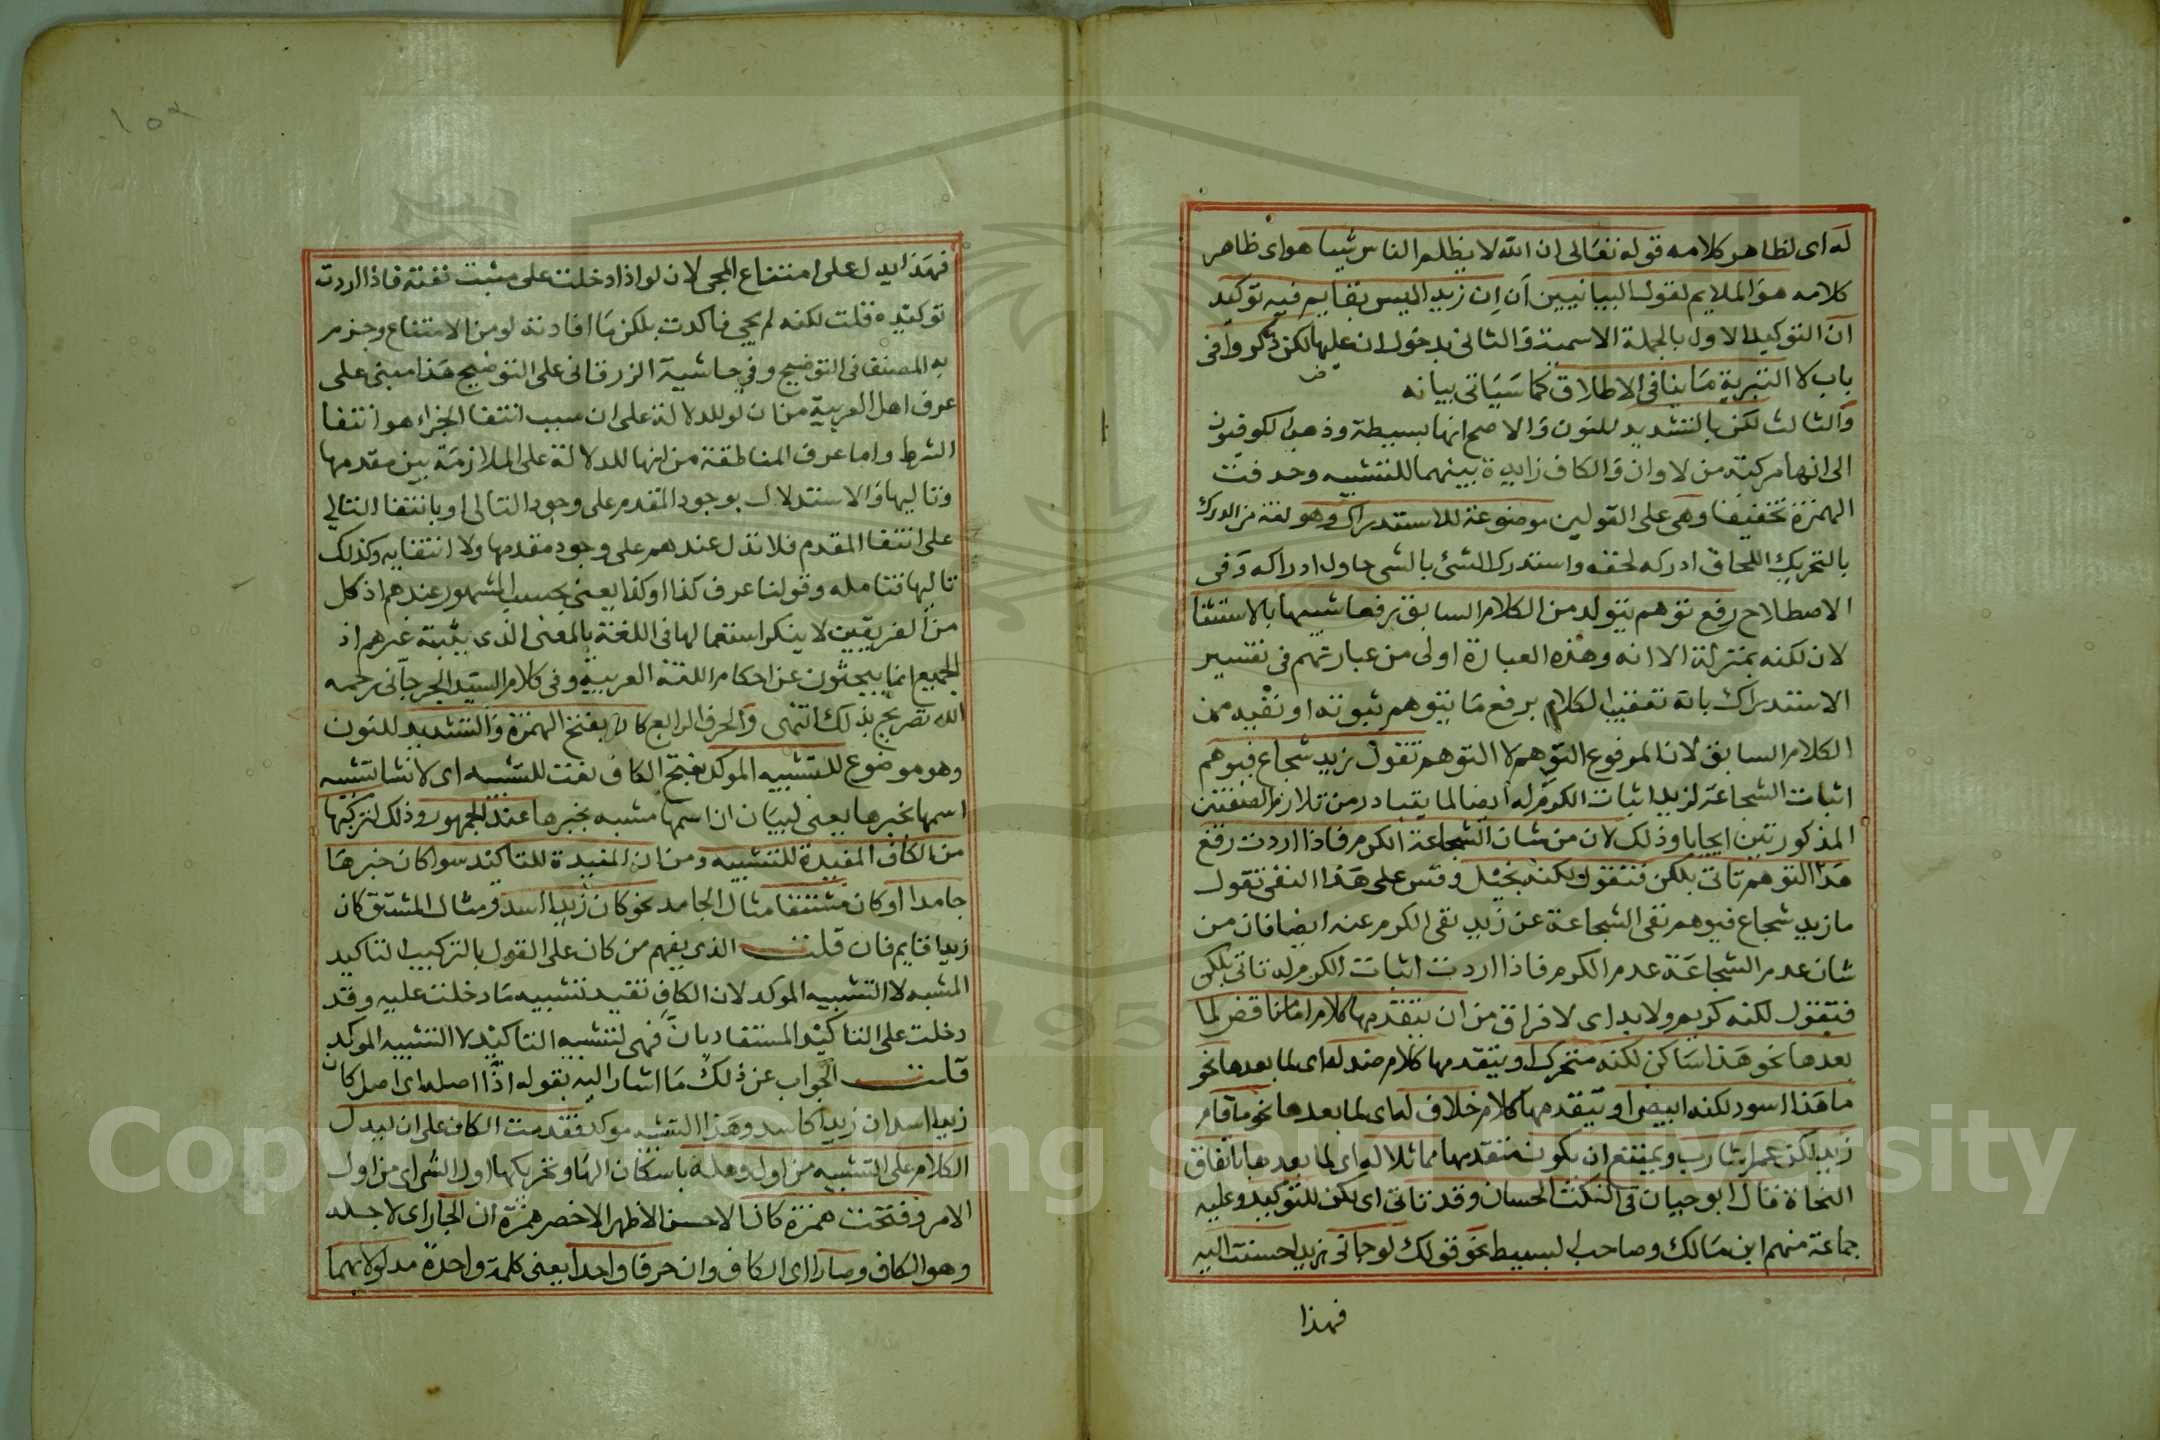 له اى لظاهر كلامه قوله تعالى ان الله لا يظلم الناس شيا هو اى ظاهر
كلامه هو الملايم لقول البيانيين ان ان زيد اليس بقايم فيه توكيد
ان التوكيد الاول بالجملة الاسمية والثانى بدخول ان عليها لكن ذكروا فى
باب لا التبرية ما ينافى الاطلاق كما سياتى بيانه
والثالث لكن بالتشديد للنون والاصح انها بسيطة وذهب الكوفيون
الى انها مركبة من لا وان والكاف زايدة بينهما للتشبيه وحذفت
الهمزة تخفيفا وهى على القولين موضوعة للاستدراك وهو لغة من الدرك
بالتحريك اللحاق ادركه لحقه واستدرك الشئ بالشى حاول ادراكه وفى
الاصطلاح رفع توهم يتولد من الكلام السابق رفعا شبيها بالاستثنا
لان لكنه بمنزلة الا انه وهذه العبارة اولى من عبارتهم فى تفسير
الاستدراك بانه تعقيب الكلام برفع ما يتوهم ثبوته او نفيه من
الكلام السابق لان المرفوع التوهم لا التوهم تقول زيد شجاع فيوهم
اثبات الشجاعة لزيد اثبات الكرم له ايضا لما يتبادر من تلازم الصفتين
المذكورتين ايجابا وذلك لان من شان الشجاعة الكرم فاذا اردت رفع
هذا التوهم تاتى بلكن فتقول لكنه بخيل وقس على هذا النفى تقول
ما زيد شجاع فيوهم نفى الشجاعة عن زيد نفى الكرم عنه ايضا فان من
شان عدم الشجاعة عدم الكرم فاذا اردت اثبات الكرم له تاتى بلكن
فتقول لكنه كريم ولابد اى لا فراق من ان يتقدمها كلام اما مناقض لما
بعدها نحو هذا ساكن لكنه متحرك او يتقدمها كلام ضد له اى لما بعدها نحو
ما هذا اسود لكنه ابيض او يتقدمها كلام خلاف له اى لما بعدها نحو ما قام
زيد لكن عمرا شارب ويمتنع ان يكون متقدمها مماثلا له اى لما بعدها باتفاق
النحاة قال ابو حيان فى النكت الحسان وقد تاتى اى لكن للتوكيد وعليه
جماعة منهم ابن مالك وصاحب البسيط نحو قولك لو جانى زيد احسنت اليه
فهذا
فهذا يدل على امتناع المجى لان لو اذا دخلت على مثبت نفته فاذا اردت
توكيده قلت لكنه لم يجى فاكدت بلكن ما افادته لو من الامتناع وجزم
به المصنف فى التوضيح وفى حاشية الزرقانى على التوضيح هذا مبنى على
عرف اهل العربية من ان لو للدلالة على ان سبب انتفا الجزاء هو انتفا
الشرط واما عرف المناطقة من انها للدلالة على الملازمة بين مقدمها
وتاليها والاستدلال بوجود المقدم على وجود التالى او بانتفا التالى
على انتفا المقدم فلا تدل عندهم على وجود مقدمها ولا انتفايه وكذلك
تاليها فتامله وقولنا عرف كذا او كذا يعنى بحسب المشهور عندهم اذ كل
من الفريقين لا ينكر استعمالها فى اللغة بالمعنى الذى يثبته غيرهم اذ
الجميع انما يبحثون عن احكام اللغة العربية وفى كلام السيد الجرجانى رحمه
الله تصريح بذلك انتهى والحرف الرابع كان بفتح الهمزة والتشديد للنون
وهو موضوع للتشبيه الموكد بفتح الكاف نعت للتشبيه اى لانشا تشبيه
اسمها بخبرها يعنى لبيان ان اسمها مشبه بخبرها عند الجمهور وذلك لتركبها
من الكاف المفيدة للتشبيه ومن ان المفيدة للتاكيد سوا كان خبرها
جامدا او كان مشتقا مثال الجامد نحو كان زيدا اسد ومثال المشتق كان
زيدا قايم فان قلت الذى يفهم من كان على القول بالتركيب التاكيد
المشبه لا التشبيه الموكد لان الكاف تفيد تشبيه ما دخلت عليه وقد
دخلت على التاكيد المستفاد بان فهى لتشبيه التاكيد لا التشبيه الموكد
قلت الجواب عن ذلك ما اشار اليه بقوله اذا اصله اى اصل كان
زيدا اسد ان زيدا كاسد وهذا التشبيه موكد فقدمت الكاف على ان ليدل
الكلام على التشبيه من اول وهلة باسكان الها وتحريكها اول الشى اى من اول
الامر وفتحت همزة كان الاحسن الاظهر الاخصر همزة ان الجار اى لاجله
وهو الكاف وصارا اى الكاف وان حرفا واحدا يعنى كلمة واحدة مدلولا بهما
Copyright © King Saud University